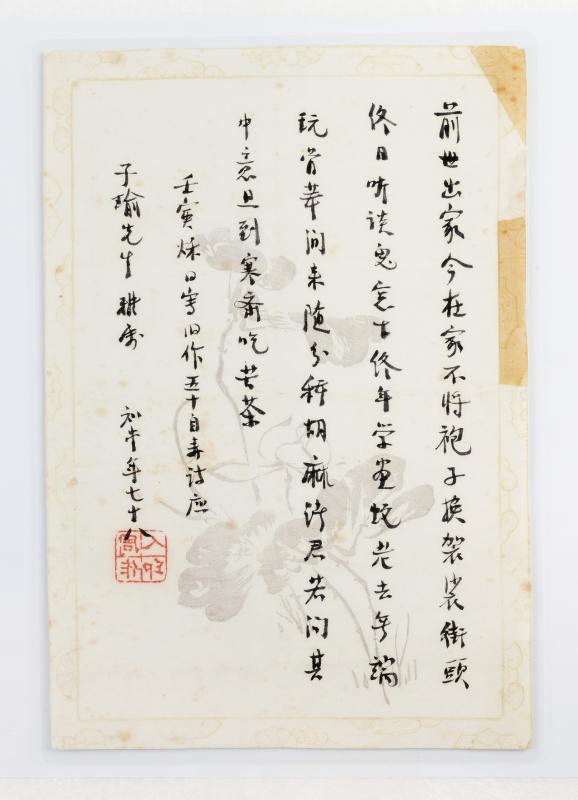 前世出家今在家不将袍子换袈裟街頭
终日听談鬼窓下终年学画蛇老去無端
玩骨董闲来随分种胡麻请君若问其
中意且到寒斋吃苦茶
壬寅秌日写旧作五十自寿诗应
子瑜先生雅属 知堂年七十八